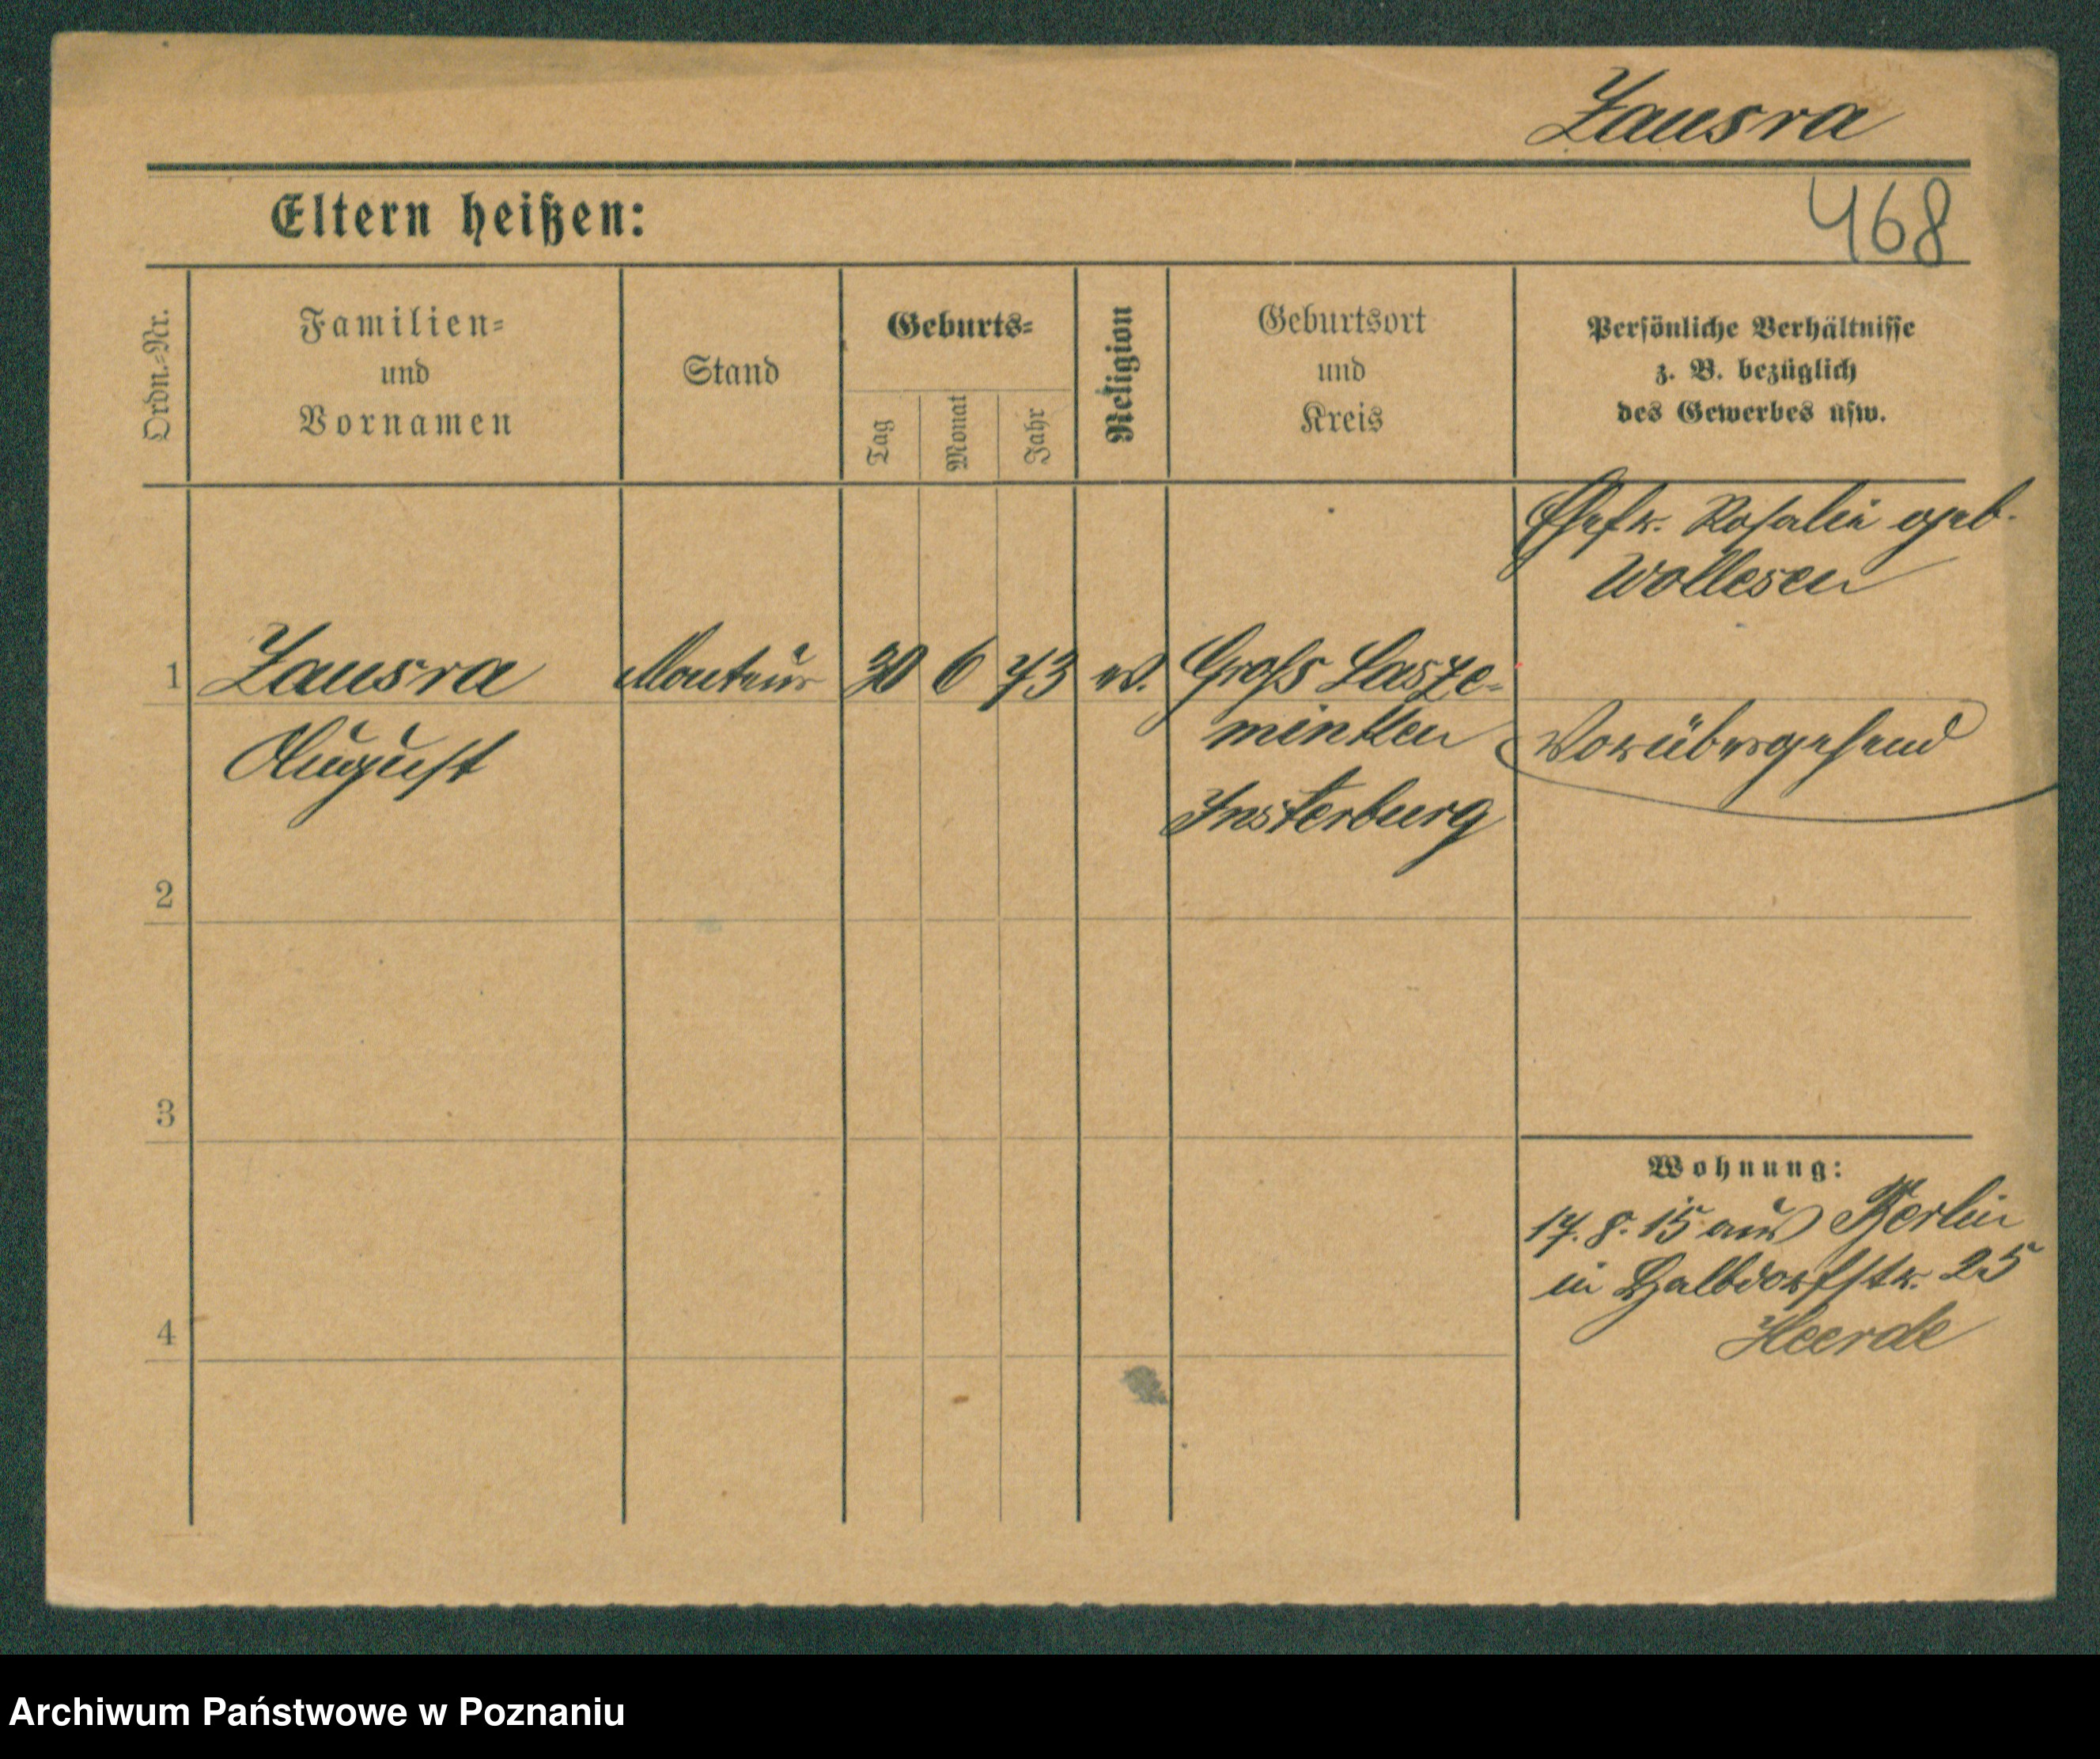 Zausra
Eltern heißen:
468
Ordn.-Nr.
Familien-
und
Vornamen
Stand
Geburts-
Tag
Monat
Jahr
Religion
Geburtsort
und
Kreis
Persönliche Verhältnisse
z. B. bezüglich
des Gewerbes usw.
Ehefr. Rosalie geb.
Wollesen
1 Zausra Monteur 30 6 73 Groß Lasze-
August minken Vorübergehend
Insterburg
2
3
Wohnung:
17. 8. 15 aus Berlin
in Halbdorfstr. 25
Heerde
4
Archiwum Państwowe w Poznaniu